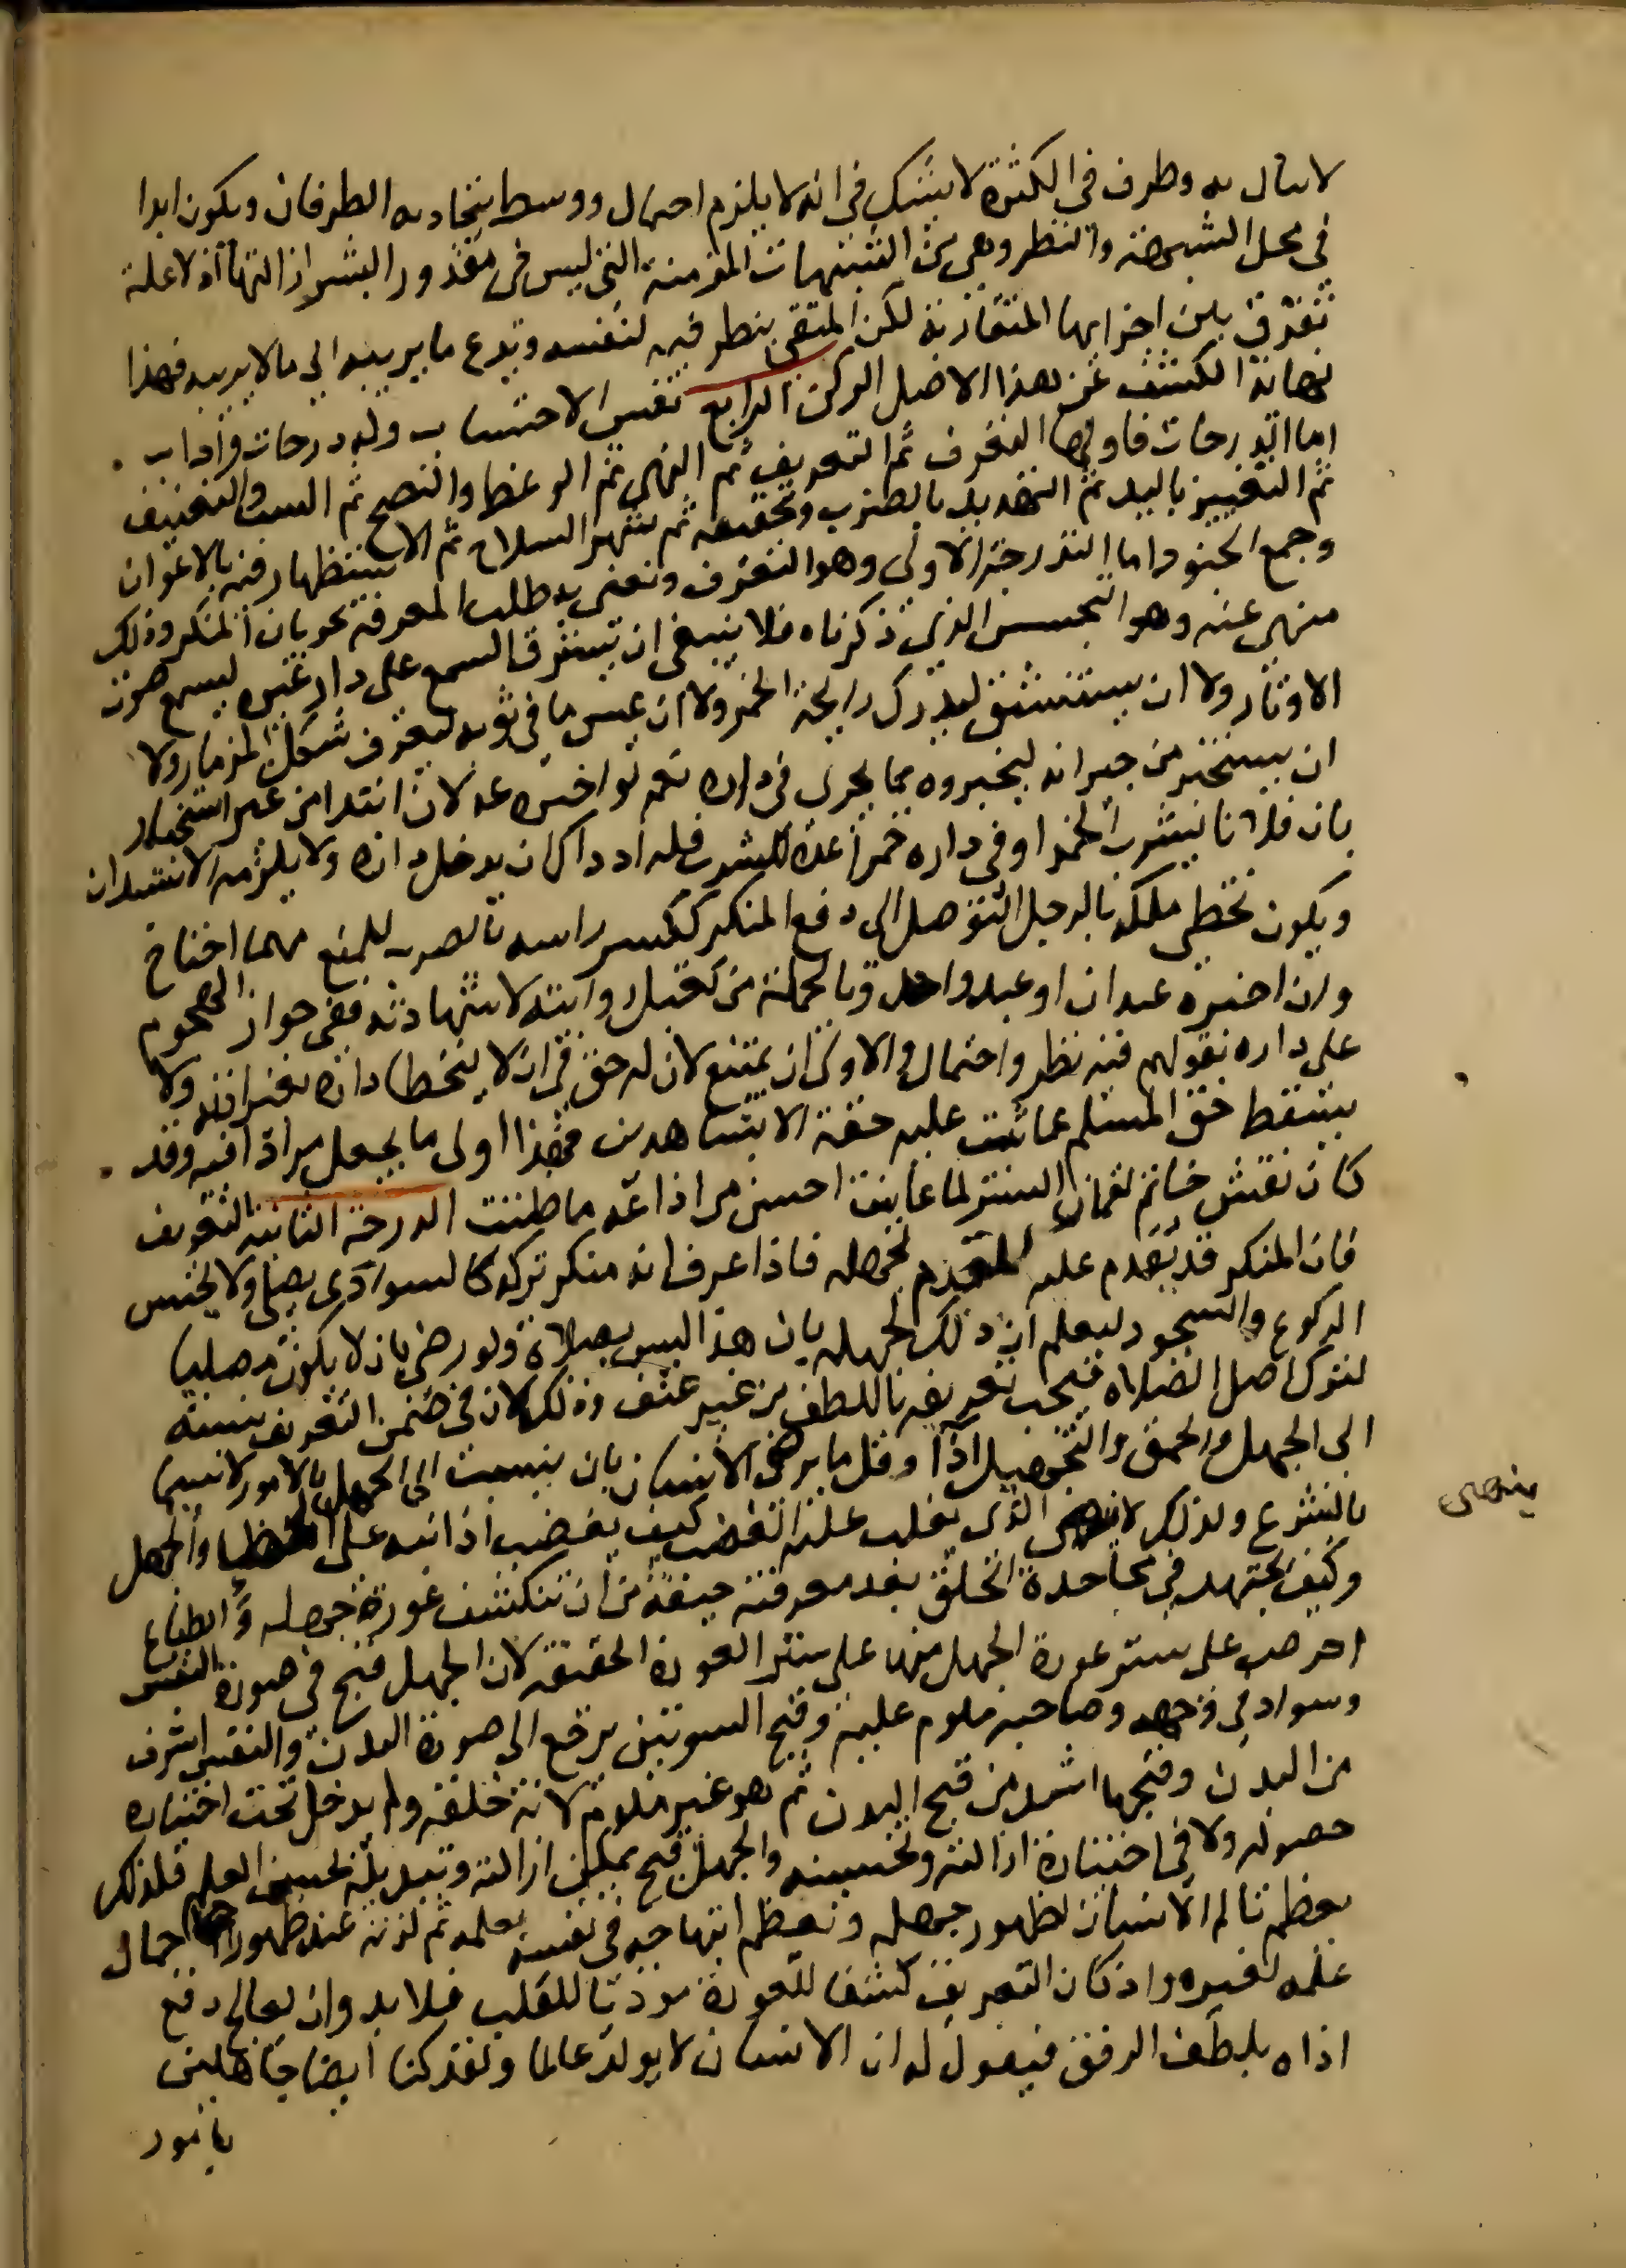 لا يبالى به وطرف فى الكثرة لا يشك فى انه لا يلزم احتمال ووسط يتجاذبه الطرفان ويكون ابدا
فى محل الشبهة والنظر وهى من الشبهات المزمنة التى ليس فى مقدور البشر ازالتها اذ لا علة
تفرق بين اجزائها المتقاربة لكن المتقى ينظر فيه لنفسه ويدع ما يريبه الى ما لا يريبه فهذا
نهاية الكشف عن هذا الاصل الركن الرابع نفس الاحتساب وله درجات واداب
اما الدرجات فاولها التعرف ثم التعريف ثم النهى ثم الوعظ والنصح ثم السب والتعنيف
ثم التغيير باليد ثم التهديد بالضرب وتحقيقه ثم شهر السلاح ثم الاستظهار فيه بالاعوان
وجمع الجنود اما الدرجة الاولى وهو التعرف ونعنى به طلب المعرفة بجريان المنكر وذلك
منهى عنه وهو التجسس الذى ذكرناه فلا ينبغى ان يسترق السمع على دار غيره ليسمع صوت
الاوتار ولا ان يستنشق ليدرك رايحة الخمر ولا ان يمس ما فى ثوبه ليعرف شكل المزمار ولا
ان يستخبر من جيرانه ليخبروه بما يجرى فى داره نعم لو اخبره عدلان ابتدا من غير استخبار
بان فلانا يشرب الخمر او فى داره خمرا عده للشرب فله اذ ذاك ان يدخل داره ولا يلزمه الاستيذان
ويكون تخطى ملكه بالدخول للتوصل الى دفع المنكر ككسر راسه بالضرب للمنع مهما احتاج
وان اخبره عدلان او عبد واحد وبالجملة من تقبل روايته لا شهادته ففى جواز الهجوم
على داره بقولهم فيه نظر واحتمال والاولى ان يمتنع لان له حق فى ان لا يتخطى داره بغير اذنه ولا
يسقط حق المسلم عما ثبت عليه حقه الا بشاهدين فهذا اولى ما يجعل مرادا فيه وقد
كان نقش خاتم لقمان الستر لما عاينت احسن من اذاعة ما ظننت الدرجة الثانية التعريف
فان المنكر قد يقدم عليه المقدم بجهله فاذا عرف انه منكر تركه كالسوادى يصلى ولا يحسن
الركوع والسجود ليعلم ان ذلك لجهله بان هذا ليس بصلاة ولو رضى بان لا يكون مصليا
لترك اصل الصلاة فيجب تعريفه باللطف من غير عنف وذلك لان فى ضمن التعريف نسبته
الى الجهل والحمق والتجهيل اذا وقل ما يرضى الانسان بان ينسب الى الجهل بالامور لا سيما
بالشرع ولذلك الذى يغلب عليه الغضب كيف يغضب اذا نبه على الخطا والجهل
وكيف يجتهد فى مجاحدة الحلق بعد معرفته خيفة من ان تنكشف عورة جهله والطباع
احرص على ستر عورة الجهل منها على ستر العورة الحقيقة لان الجهل قبح فى صورة النفس
وسواد فى وجهه وصاحبه ملوم عليه وقبح السوتين يرجع الى صورة البدن والنفس اشرف
من البدن وقبحها اشد من قبح البدن ثم هو غير ملوم لانه خلقة ولم يدخل تحت اختياره
حصوله ولا فى اختياره ازالته وتحسينه والجهل قبح يمكن ازالته وتبديله بحسن العلم فلذلك
يعظم تالم الانسان لظهور جهله ويعظم ابتهاجه فى نفسه بعلمه ثم لذته عند ظهور جمال
علمه لغيره واذ كان التعريف كشفا للعورة موذيا للقلب فلا بد وان يعالج دفع
اذاه بلطف الرفق فيقول له ان الانسان لا يولد عالما ولقد كنا ايضا جاهلين
بامور